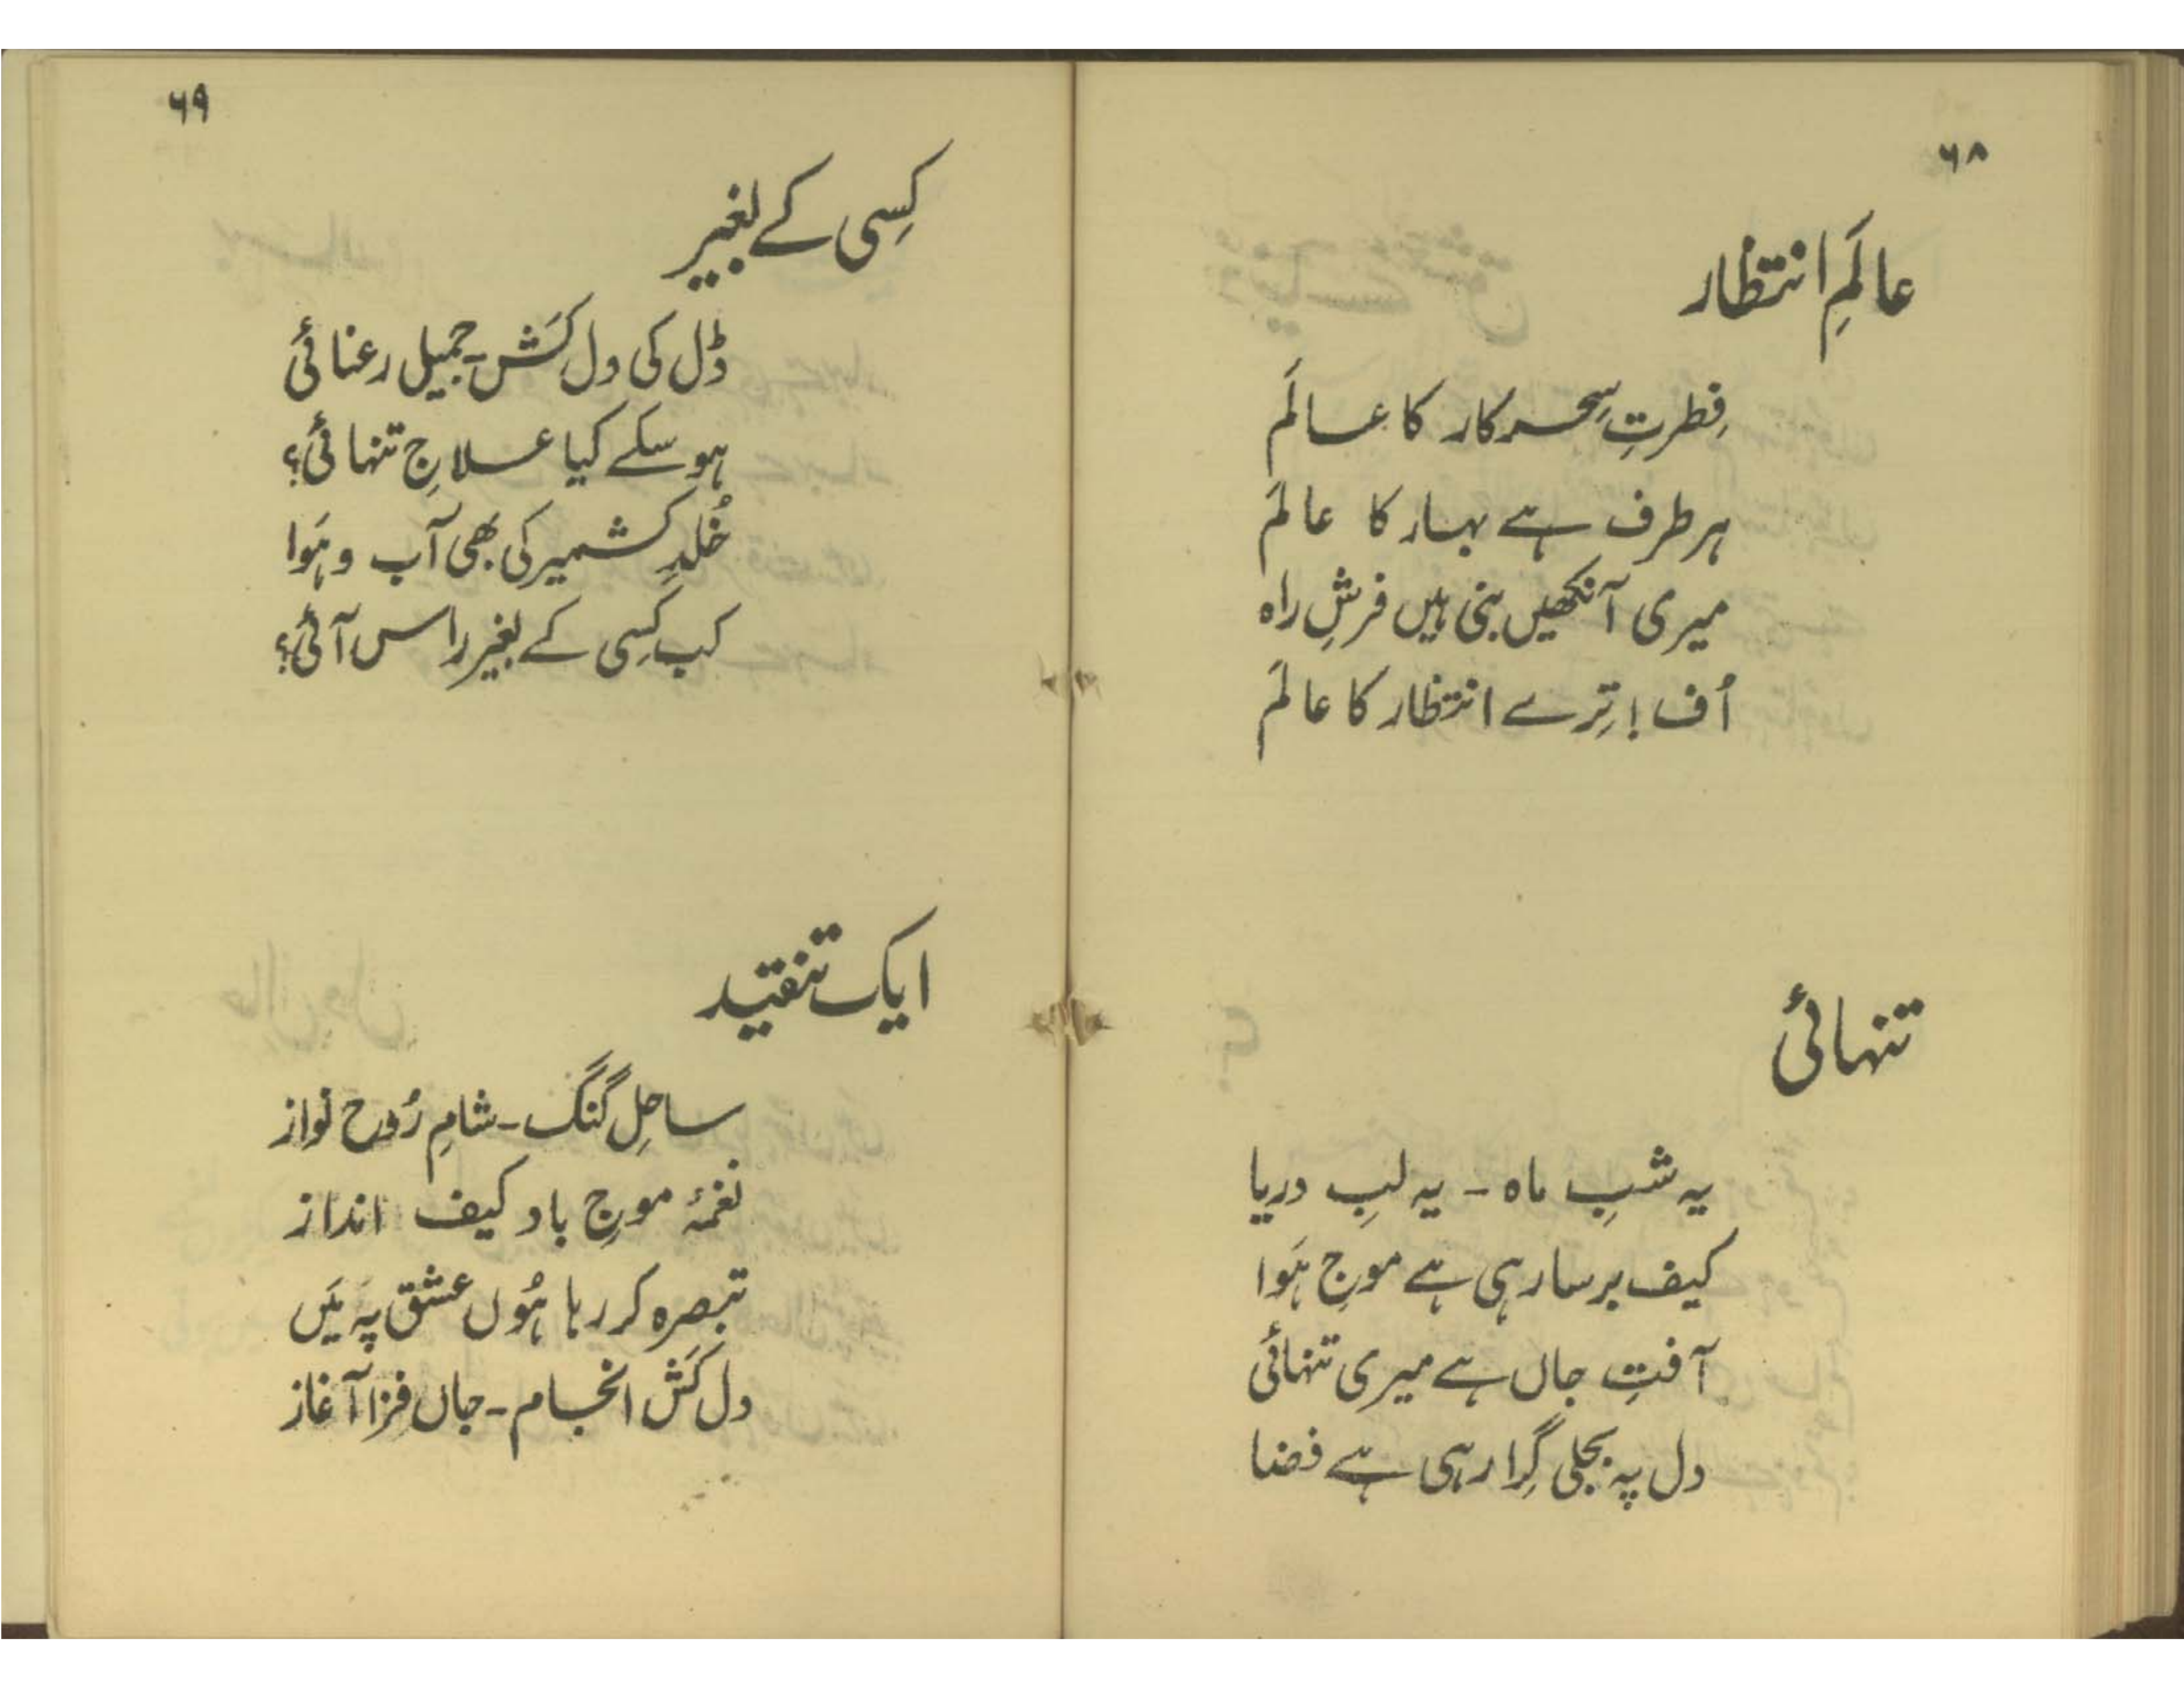 ۶۸
عالَمِ انتظار
فِطرتِ سِحر کار کا عالَم
ہر طرف ہے بہار کا عالَم
میری آنکھیں بنی ہیں فرشِ راہ
اُف! تِرے انتظار کا عالَم
تنہائی
یہ شبِ ماہ - یہ لبِ دریا
کیف برسا رہی ہے موجِ ہَوا
آفتِ جاں ہے میری تنہائی
دل پہ بجلی گِرا رہی ہے فضا
۶۹
کِسی کے بغیر
ڈل کی دل کَش - جمیل رعنائی
ہو سکے کیا علاجِ تنہائی؟
خُلدِ کشمیر کی بھی آب و ہَوا
کب کِسی کے بغیر راس آئی؟
ایک تنقید
ساحلِ گنگ - شامِ رُوح نواز
نغمۂ موجِ باد کیف انداز
تبصرہ کر رہا ہُوں عشق پہ مَیں
دل کَش انجام - جاں فِزا آغاز